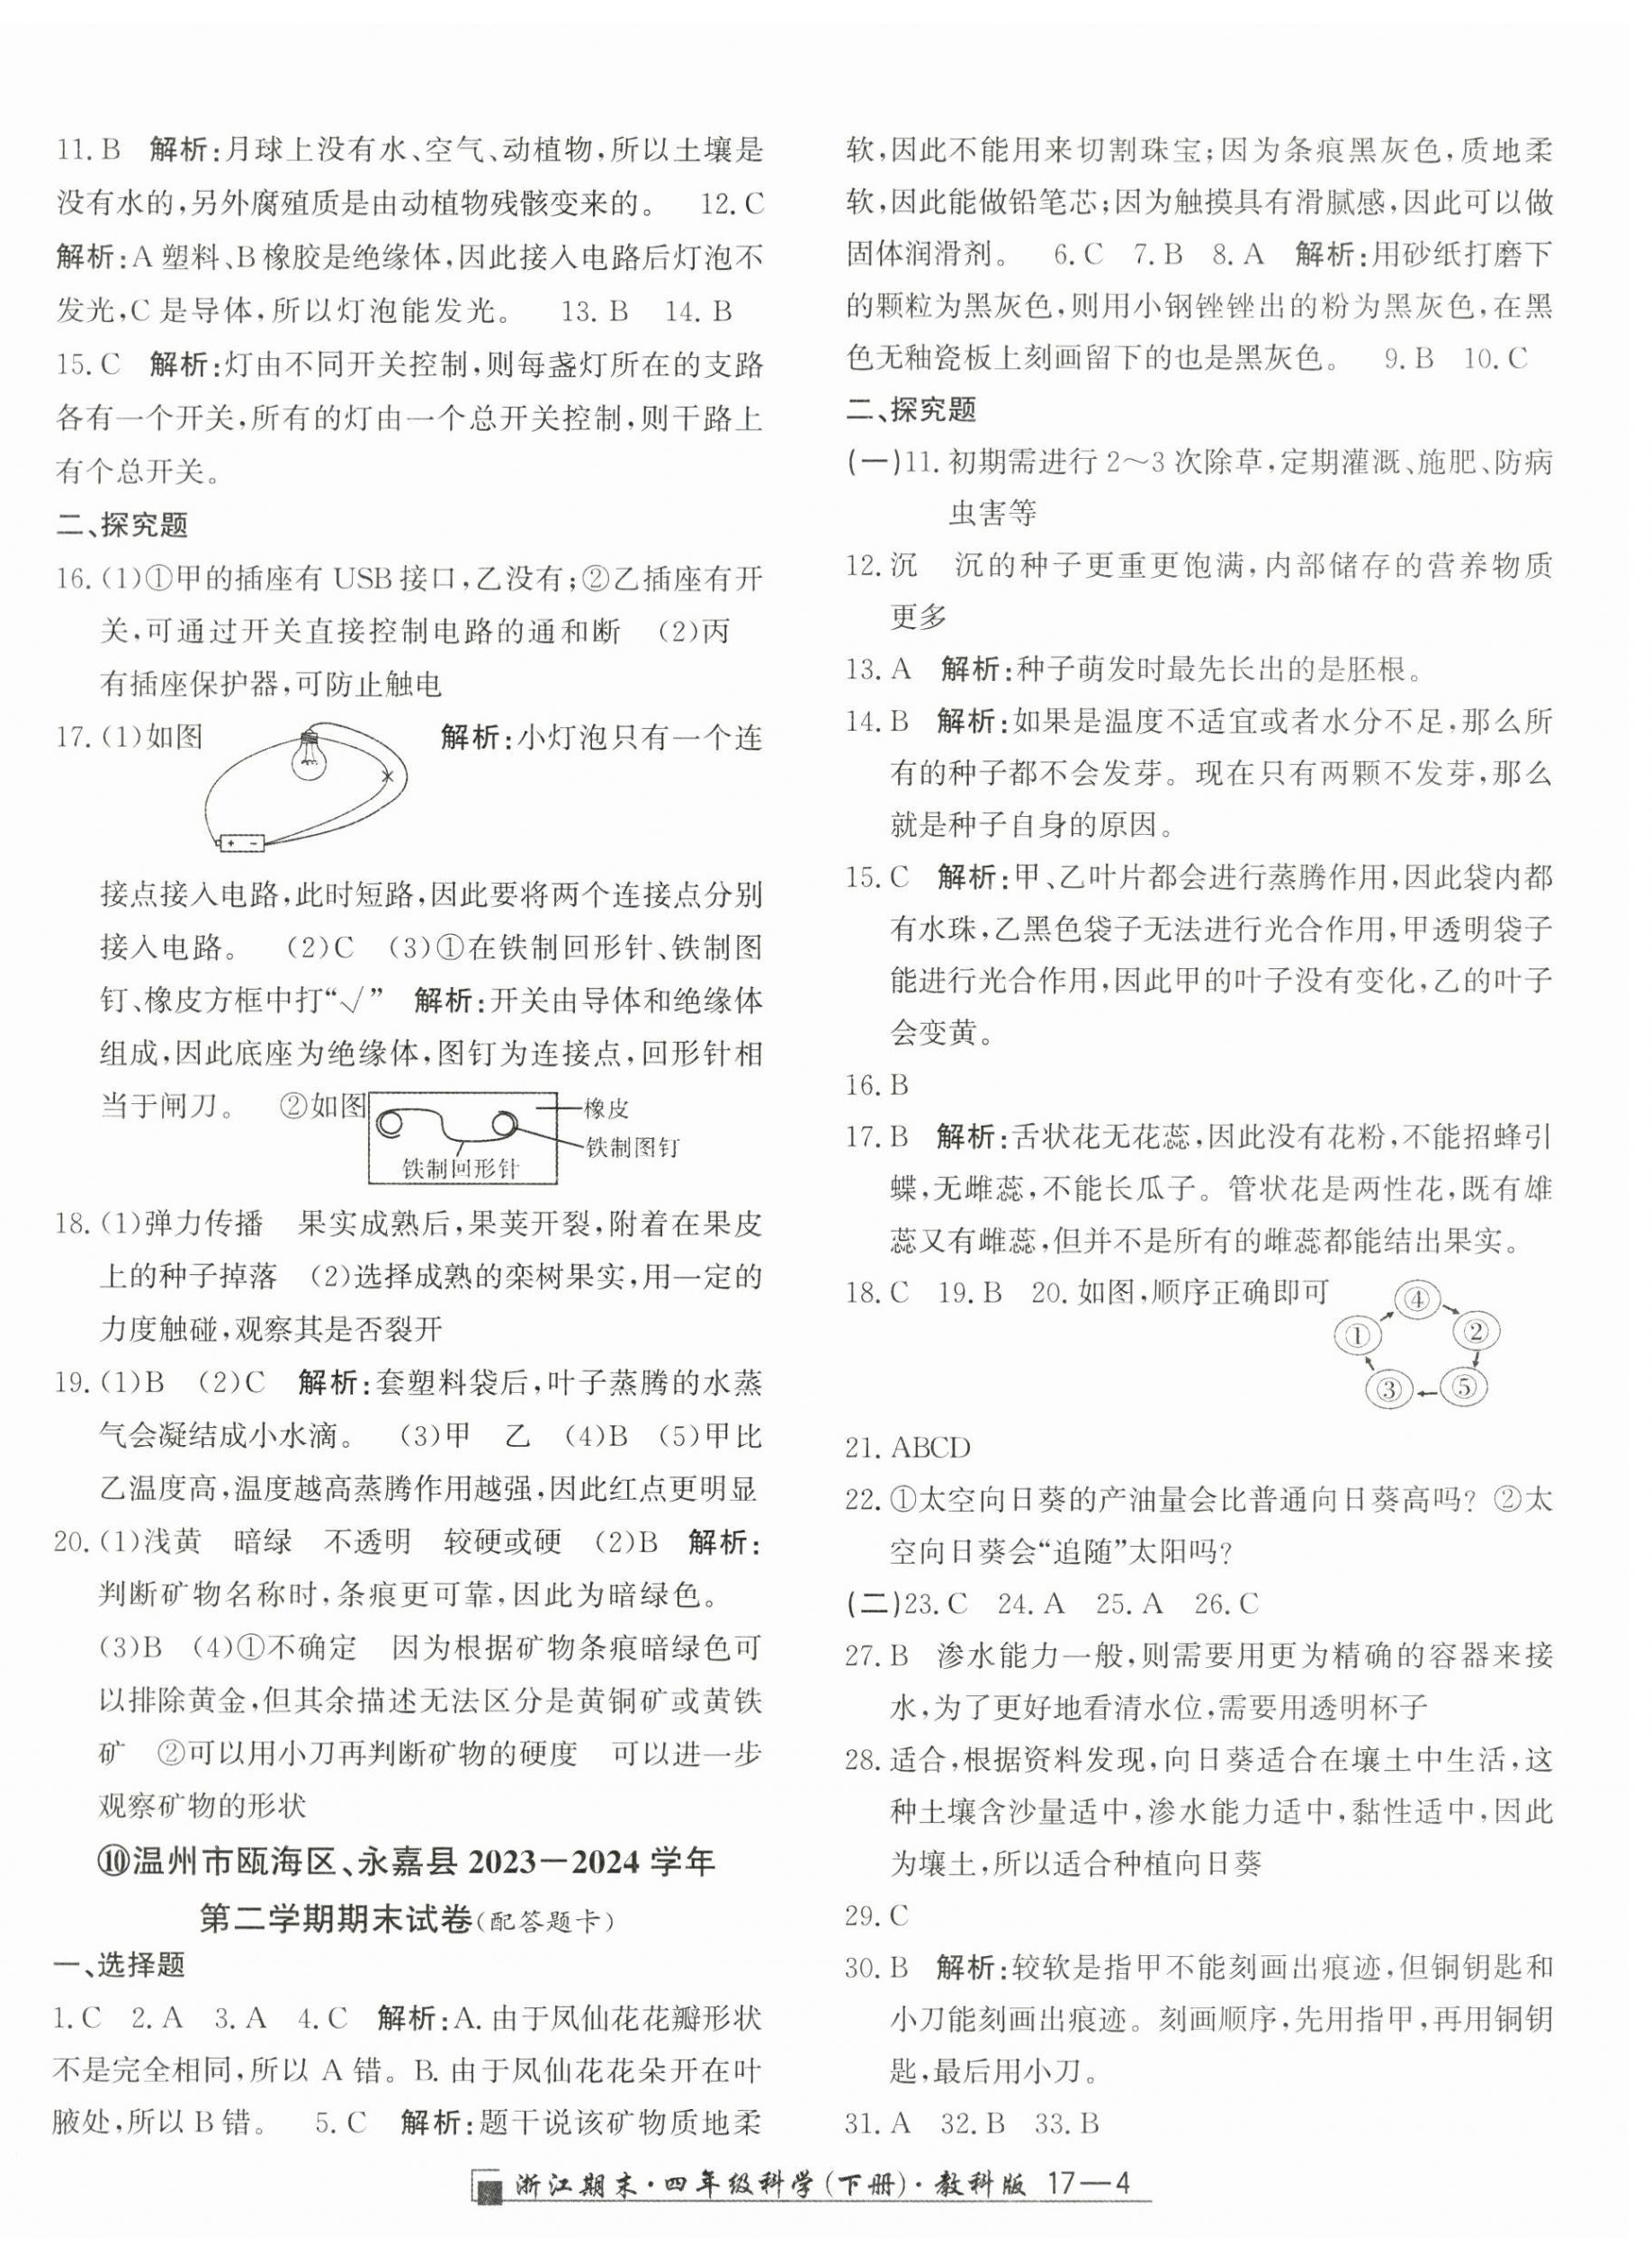 11. B　解析:月球上没有水、空气、动植物,所以土壤是
没有水的,另外腐殖质是由动植物残骸变来的。　12. C
解析:A 塑料、B 橡胶是绝缘体,因此接入电路后灯泡不
发光,C 是导体,所以灯泡能发光。　13. B　14. B
15. C　解析:灯由不同开关控制,则每盏灯所在的支路
各有一个开关,所有的灯由一个总开关控制,则干路上
有个总开关。
二、探究题
16. (1)①甲的插座有 USB 接口,乙没有;②乙插座有开
关,可通过开关直接控制电路的通和断　(2)丙
有插座保护器,可防止触电
17. (1)如图　解析:小灯泡只有一个连
+ -
接点接入电路,此时短路,因此要将两个连接点分别
接入电路。　(2)C　(3)①在铁制回形针、铁制图
钉、橡皮方框中打“√”　解析:开关由导体和绝缘体
组成,因此底座为绝缘体,图钉为连接点,回形针相
当于闸刀。　②如图
橡皮
铁制图钉
铁制回形针
18. (1)弹力传播　果实成熟后,果荚开裂,附着在果皮
上的种子掉落　(2)选择成熟的栾树果实,用一定的
力度触碰,观察其是否裂开
19. (1)B　(2)C　解析:套塑料袋后,叶子蒸腾的水蒸
气会凝结成小水滴。　(3)甲　乙　(4)B　(5)甲比
乙温度高,温度越高蒸腾作用越强,因此红点更明显
20. (1)浅黄　暗绿　不透明　较硬或硬　(2)B　解析:
判断矿物名称时,条痕更可靠,因此为暗绿色。
(3)B　(4)①不确定　因为根据矿物条痕暗绿色可
以排除黄金,但其余描述无法区分是黄铜矿或黄铁
矿　②可以用小刀再判断矿物的硬度　可以进一步
观察矿物的形状
⑩温州市瓯海区、永嘉县 2023—2024 学年
第二学期期末试卷(配答题卡)
一、选择题
1. C　2. A　3. A　4. C　解析:A. 由于凤仙花花瓣形状
不是完全相同,所以 A 错。B. 由于凤仙花花朵开在叶
腋处,所以 B 错。　5. C　解析:题干说该矿物质地柔
软,因此不能用来切割珠宝;因为条痕黑灰色,质地柔
软,因此能做铅笔芯;因为触摸具有滑腻感,因此可以做
固体润滑剂。　6. C　7. B　8. A　解析:用砂纸打磨下
的颗粒为黑灰色,则用小钢锉锉出的粉为黑灰色,在黑
色无釉瓷板上刻画留下的也是黑灰色。　9. B　10. C
二、探究题
(一)11. 初期需进行 2～3 次除草,定期灌溉、施肥、防病
虫害等
12. 沉　沉的种子更重更饱满,内部储存的营养物质
更多
13. A　解析:种子萌发时最先长出的是胚根。
14. B　解析:如果是温度不适宜或者水分不足,那么所
有的种子都不会发芽。现在只有两颗不发芽,那么
就是种子自身的原因。
15. C　解析:甲、乙叶片都会进行蒸腾作用,因此袋内都
有水珠,乙黑色袋子无法进行光合作用,甲透明袋子
能进行光合作用,因此甲的叶子没有变化,乙的叶子
会变黄。
16. B
17. B　解析:舌状花无花蕊,因此没有花粉,不能招蜂引
蝶,无雌蕊,不能长瓜子。管状花是两性花,既有雄
蕊又有雌蕊,但并不是所有的雌蕊都能结出果实。
18. C　19. B　20. 如图,顺序正确即可
④
① ②
③ ⑤
21. ABCD
22. ①太空向日葵的产油量会比普通向日葵高吗? ②太
空向日葵会“追随”太阳吗?
(二)23. C　24. A　25. A　26. C
27. B　渗水能力一般,则需要用更为精确的容器来接
水,为了更好地看清水位,需要用透明杯子
28. 适合,根据资料发现,向日葵适合在壤土中生活,这
种土壤含沙量适中,渗水能力适中,黏性适中,因此
为壤土,所以适合种植向日葵
29. C
30. B　解析:较软是指甲不能刻画出痕迹,但铜钥匙和
小刀能刻画出痕迹。刻画顺序,先用指甲,再用铜钥
匙,最后用小刀。
31. A　32. B　33. B
浙江期末·四年级科学(下册)·教科版 17—4